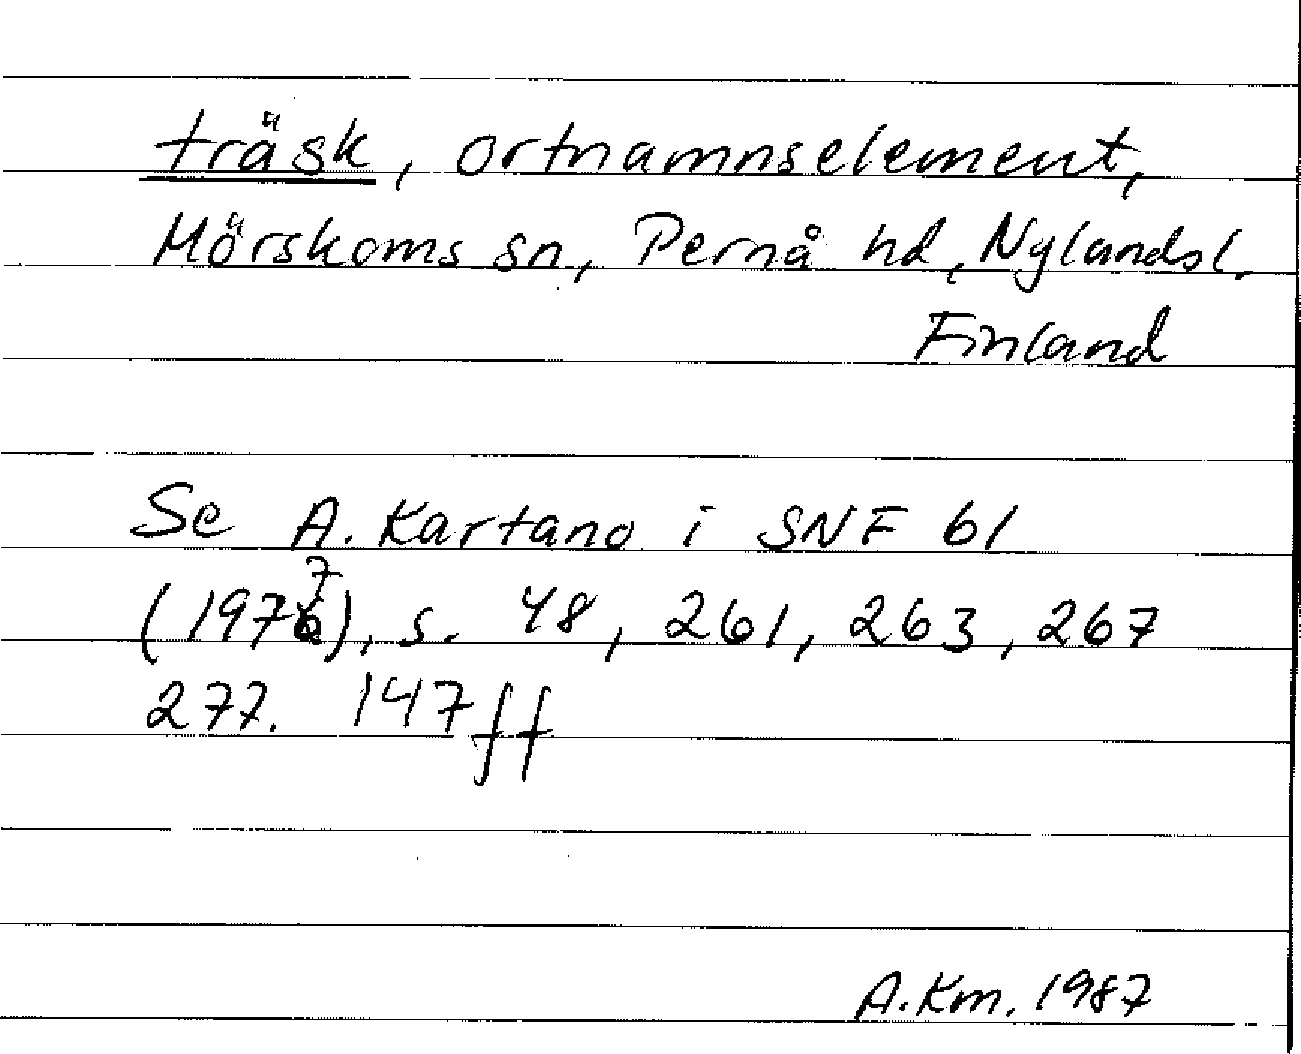 träsk, ortnamnselement,
Mörskoms sn, Pernå hd, Nylandsl.
Finland
Se A. Kartano i SNF 61
(1977), s. 48, 261, 263, 267
277. 147 ff
A.Km. 1987